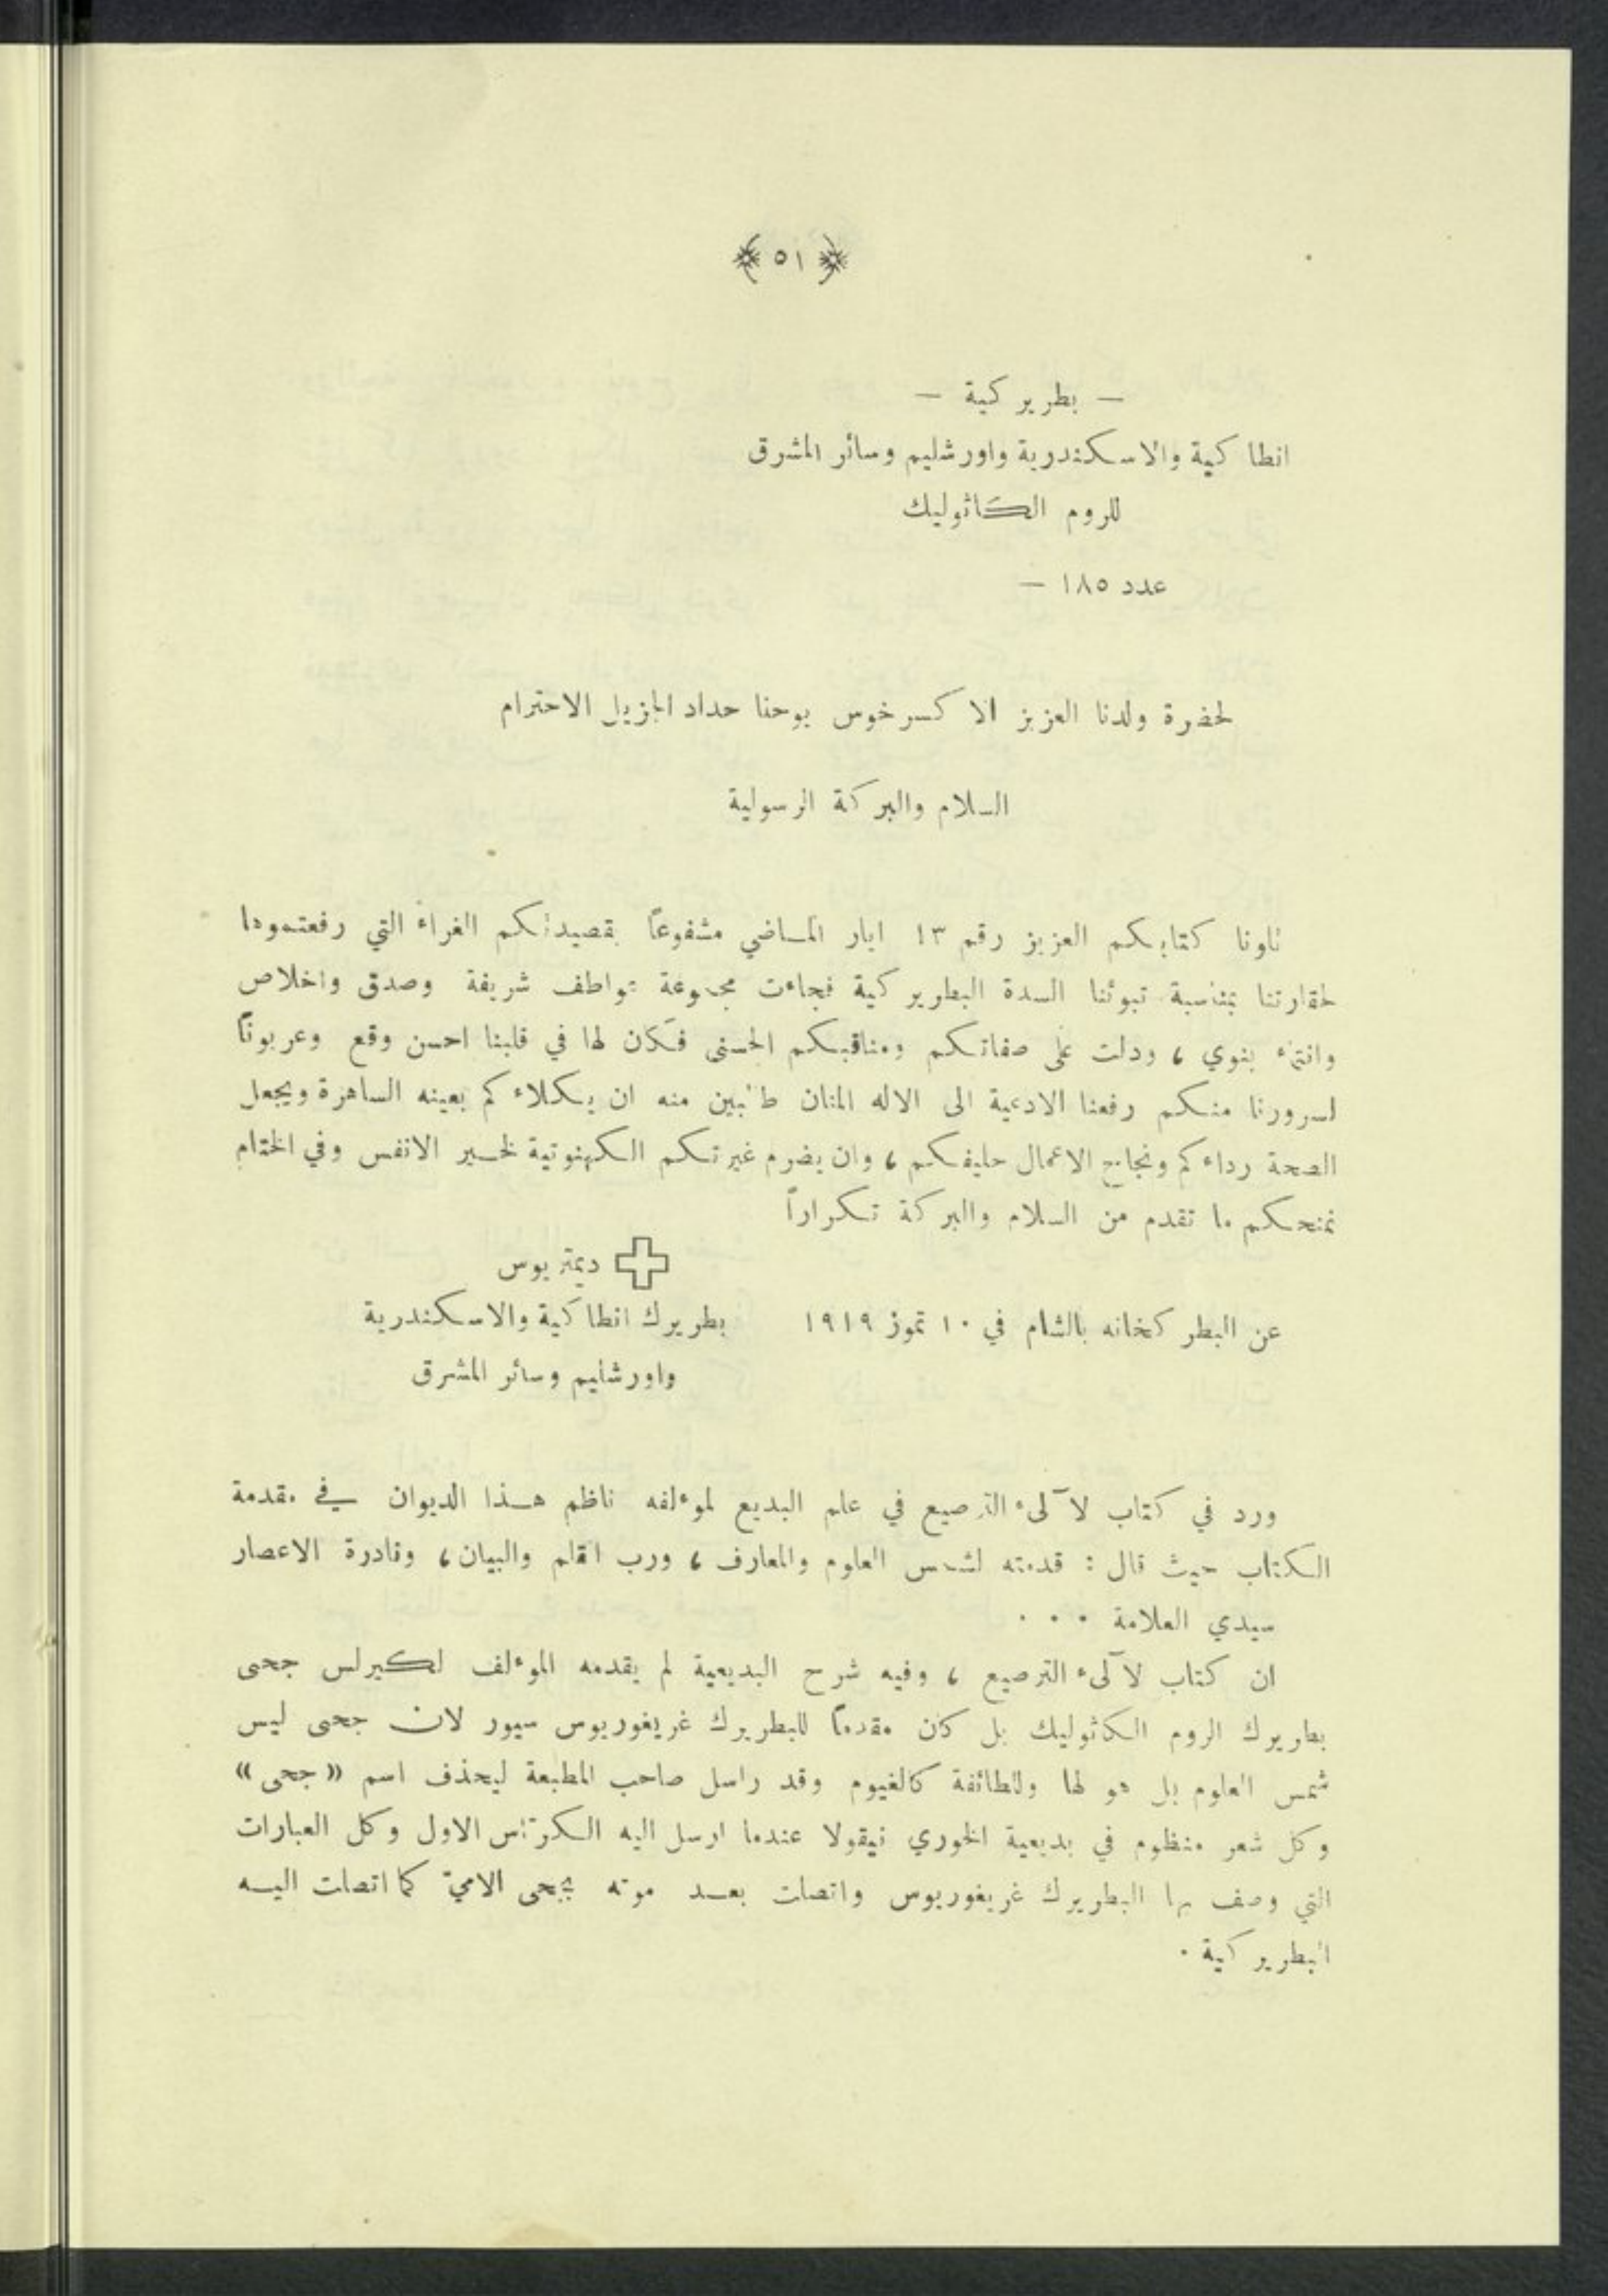 ﴿ ٥١ ﴾
— بطريركية —
انطاكية والاسكندرية واورشليم وسائر المشرق
للروم الكاثوليك
عدد ١٨٥ —
لحضرة ولدنا العزيز الاكسرخوس يوحنا حداد الجزيل الاحترام
السلام والبركة الرسولية
تلونا كتابكم العزيز رقم ١٣ ايار الماضي مشفوعاً بقصيدتكم الغراء التي رفعتموها
لحقارتنا بمناسبة تبوئنا السدة البطريركية فجاءت مجموعة عواطف شريفة وصدق واخلاص
وانتماء بنوي ، ودلت على صفاتكم ومناقبكم الحسنى فكان لها في قلبنا احسن وقع وعربوناً
لسرورنا منكم رفعنا الادعية الى الاله المنان طالبين منه ان يكلاءكم بعينه الساهرة ويجعل
الصحة رداءكم ونجاح الاعمال حليفكم ، وان يضرم غيرتكم الكهنوتية لخير الانفس وفي الختام
نمنحكم ما تقدم من السلام والبركة تكراراً
ديمتريوس
عن البطركخانه بالشام في ١٠ تموز ١٩١٩ بطريرك انطاكية والاسكندرية
واورشليم وسائر المشرق
ورد في كتاب لآلىء الترصيع في علم البديع لموءلفه ناظم هذا الديوان في مقدمة
الكتاب حيث قال : قدمته لشمس العلوم والمعارف ، ورب القلم والبيان ، ونادرة الاعصار
سيدي العلامة . . .
ان كتاب لآلىء الترصيع ، وفيه شرح البديعية لم يقدمه الموءلف لكيرلس جحى
بطريرك الروم الكاثوليك بل كان مقدماً للبطريرك غريغوريوس سيور لان جحى ليس
شمس العلوم بل هو لها وللطائفة كالغيوم وقد راسل صاحب المطبعة ليحذف اسم « جحى »
وكل شعر منظوم في بديعية الخوري نيقولا عندما ارسل اليه الكراس الاول وكل العبارات
التي وصف بها البطريرك غريغوريوس واتصلت بعد موته بجحى الاميّ كما اتصلت اليه
البطريركية .